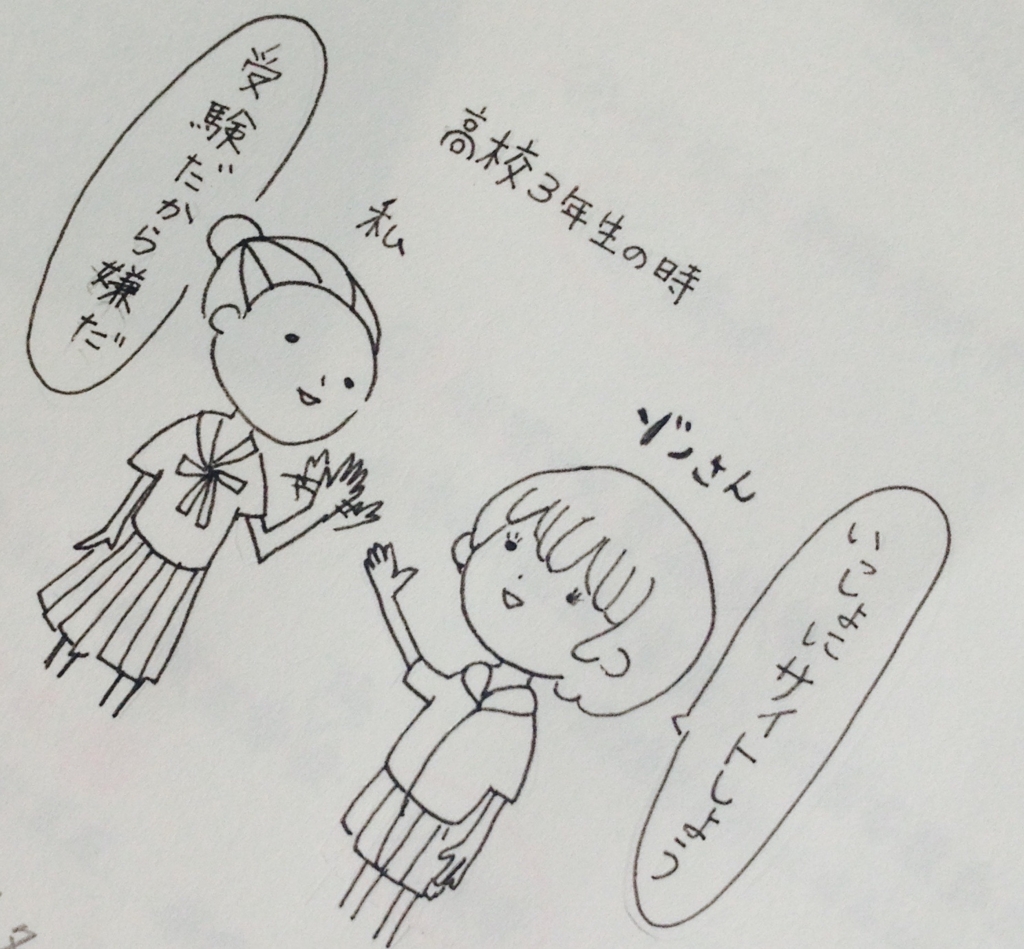 高校3年生の時
私
受験だから嫌だ
ゾンさん
いっしょにサイトしよう